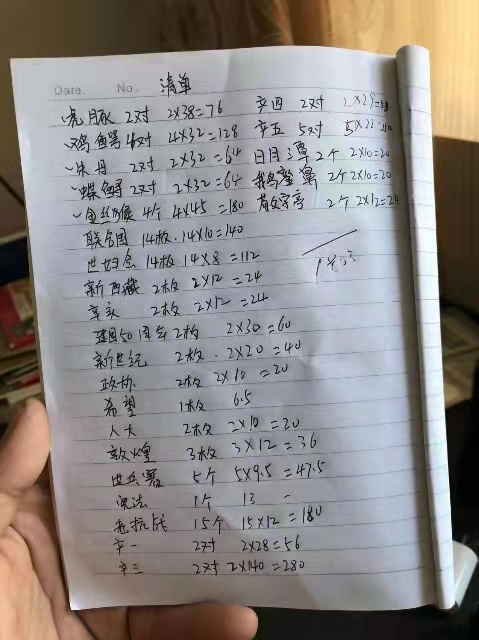 Date. No. 清单
虎豚 2对 2×38=76
鸡鱼 4对 4×32=128
牡丹 2对 2×32=64
蝶鲟 2对 2×32=64
金丝猴 4个 4×45=180
联合国 14枚 14×10=140
世妇会 14枚 14×8=112
新西藏 2枚 2×12=24
辛亥 2枚 2×12=24
建国50周年 2枚 2×30=60
新世纪 2枚 2×20=40
政协 2枚 2×10=20
希望 1枚 6.5
人大 2枚 2×10=20
敦煌 3枚 3×12=36
世兵器 5个 5×9.5=47.5
宪法 1个 13 -
老抗战 15个 15×12=180
辛一 2对 2×28=56
辛三 2对 2×140=280
辛四 2对 2×29=58
辛五 5对 5×22=110
日月潭 2个 2×10=20
鹅銮鼻 2个 2×10=20
2个 2×12=24